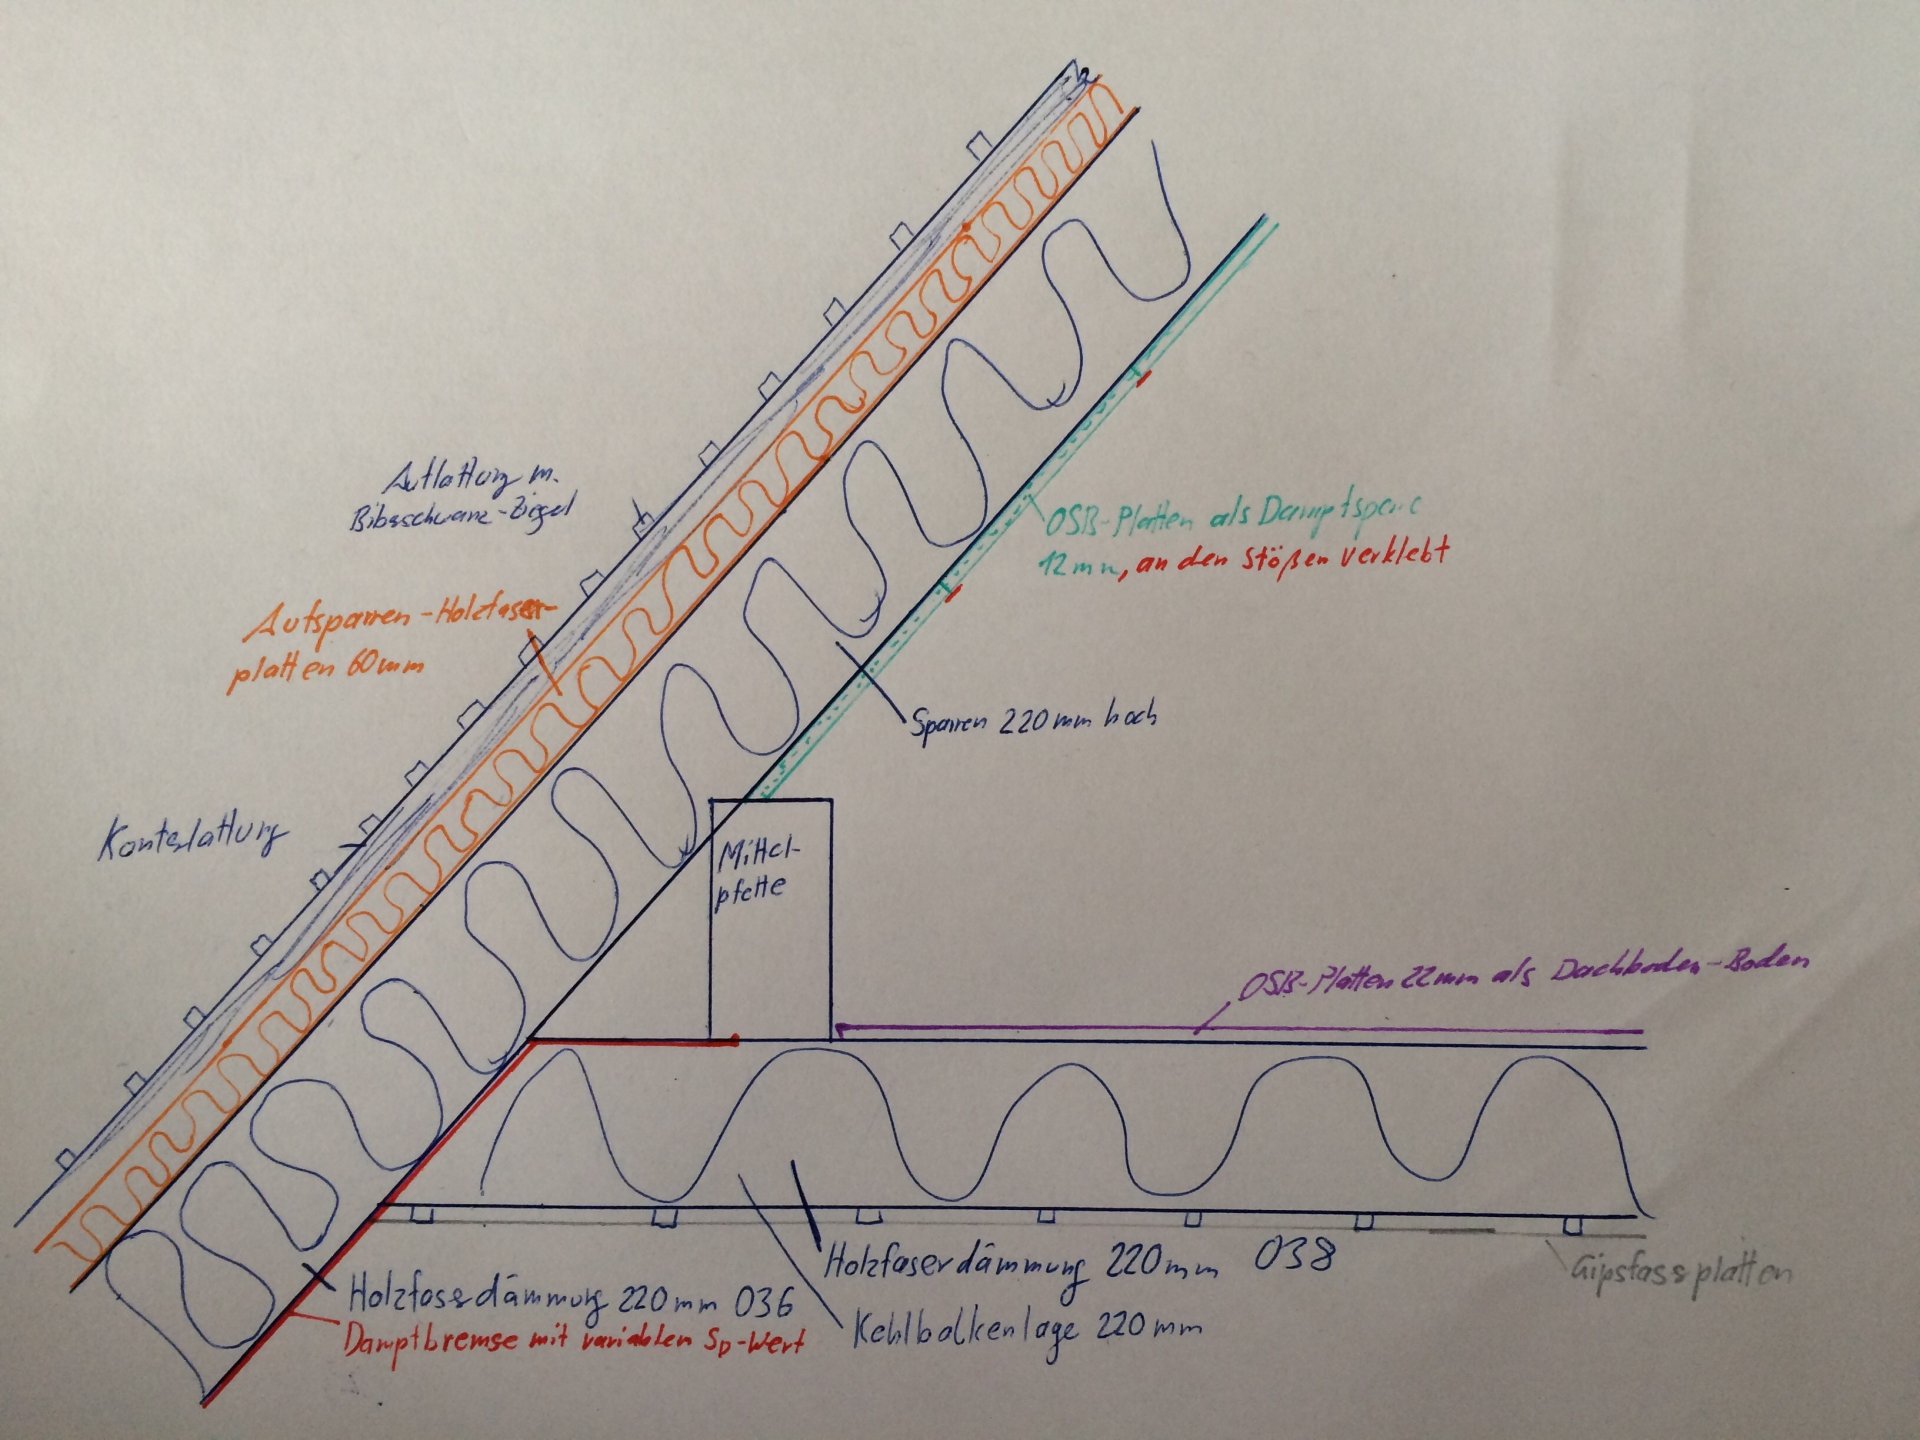 Auflattung m.
Biberschwanz-Ziegel
OSB-Platten als Dampfsperre
12mm, an den Stößen verklebt
Aufsparren-Holzfaser-
platten 60mm
Sparren 220mm hoch
Konterlattung
Mittel-
pfette
OSB-Platten 22mm als Dachboden-Boden
Holzfaserdämmung 220mm 038
Gipsfaserplatten
Holzfaserdämmung 220mm 036
Dampfbremse mit variablen SD-Wert
Kehlbalkenlage 220mm